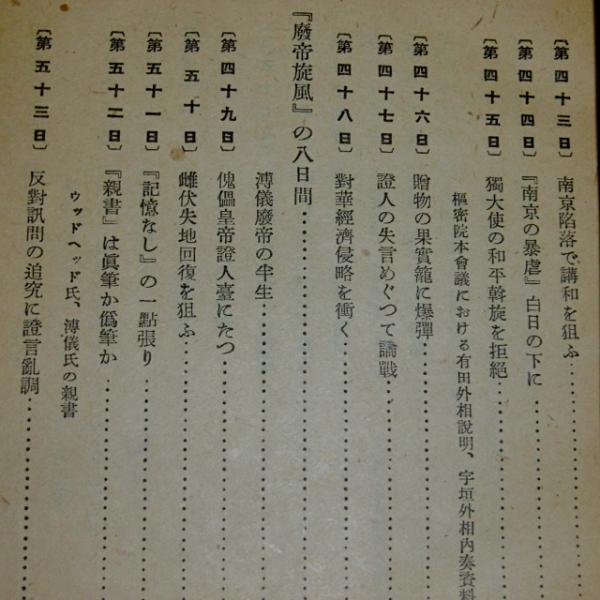 〔第四十三日〕 南京陷落で講和を狙ふ…………
〔第四十四日〕 『南京の暴虐』白日の下に…………
〔第四十五日〕 獨大使の和平斡旋を拒絕…………
樞密院本會議における有田外相說明、宇垣外相內奏資料
〔第四十六日〕 贈物の果實籠に爆彈…………
〔第四十七日〕 證人の失言めぐつて論戰…………
〔第四十八日〕 對華經濟侵略を衝く…………
『廢帝旋風』の八日間…………
溥儀廢帝の半生…………
〔第四十九日〕 傀儡皇帝證人臺にたつ…………
〔第五十日〕 雌伏失地回復を狙ふ…………
〔第五十一日〕 『記憶なし』の一點張り…………
〔第五十二日〕 『親書』は眞筆か僞筆か…………
ウッドヘッド氏、溥儀氏の親書
〔第五十三日〕 反對訊問の追究に證言亂調…………